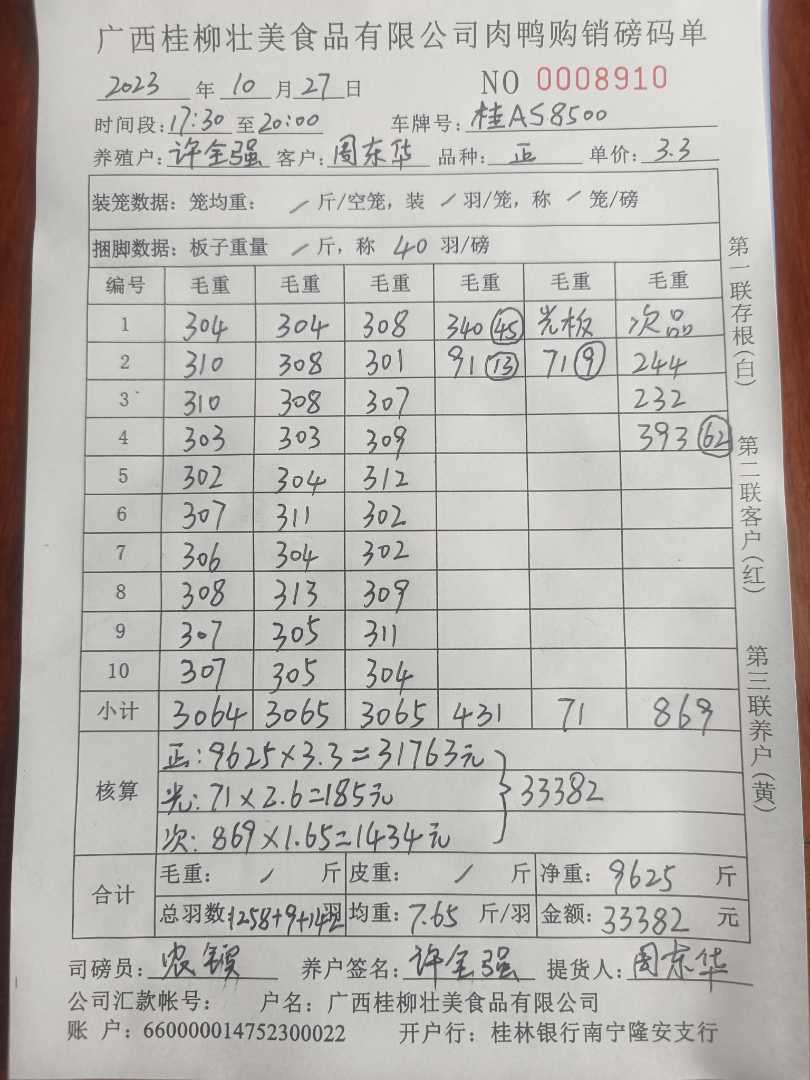 广西桂柳壮美食品有限公司肉鸭购销磅码单
2023 年 10 月 27 日 NO 0008910
时间段: 17:30 至 20:00 车牌号: 桂AS8500
养殖户: 许全强 客户: 周东华 品种: 正 单价: 3.3
装笼数据: 笼均重: / 斤/空笼, 装 / 羽/笼, 称 / 笼/磅
捆脚数据: 板子重量 / 斤, 称 40 羽/磅
编号 毛重 毛重 毛重 毛重 毛重 毛重
1 304 304 308 340 (45) 光板 次品
2 310 308 301 91 (13) 71 (9) 244
3 310 308 307 232
4 303 303 309 393 (62)
5 302 304 312
6 307 311 302
7 306 304 302
8 308 313 309
9 307 305 311
10 307 305 304
小计 3064 3065 3065 431 71 869
核算
正: 9625×3.3=31763元
光: 71×2.6=185元
次: 869×1.65=1434元
} 33382
合计
毛重: / 斤 皮重: / 斤 净重: 9625 斤
总羽数: 1258+9+142 羽 均重: 7.65 斤/羽 金额: 33382 元
司磅员: 农 养户签名: 许全强 提货人: 周东华
公司汇款帐号: 户名: 广西桂柳壮美食品有限公司
账 户: 660000014752300022 开户行: 桂林银行南宁隆安支行
第一联存根(白)
第二联客户(红)
第三联养户(黄)